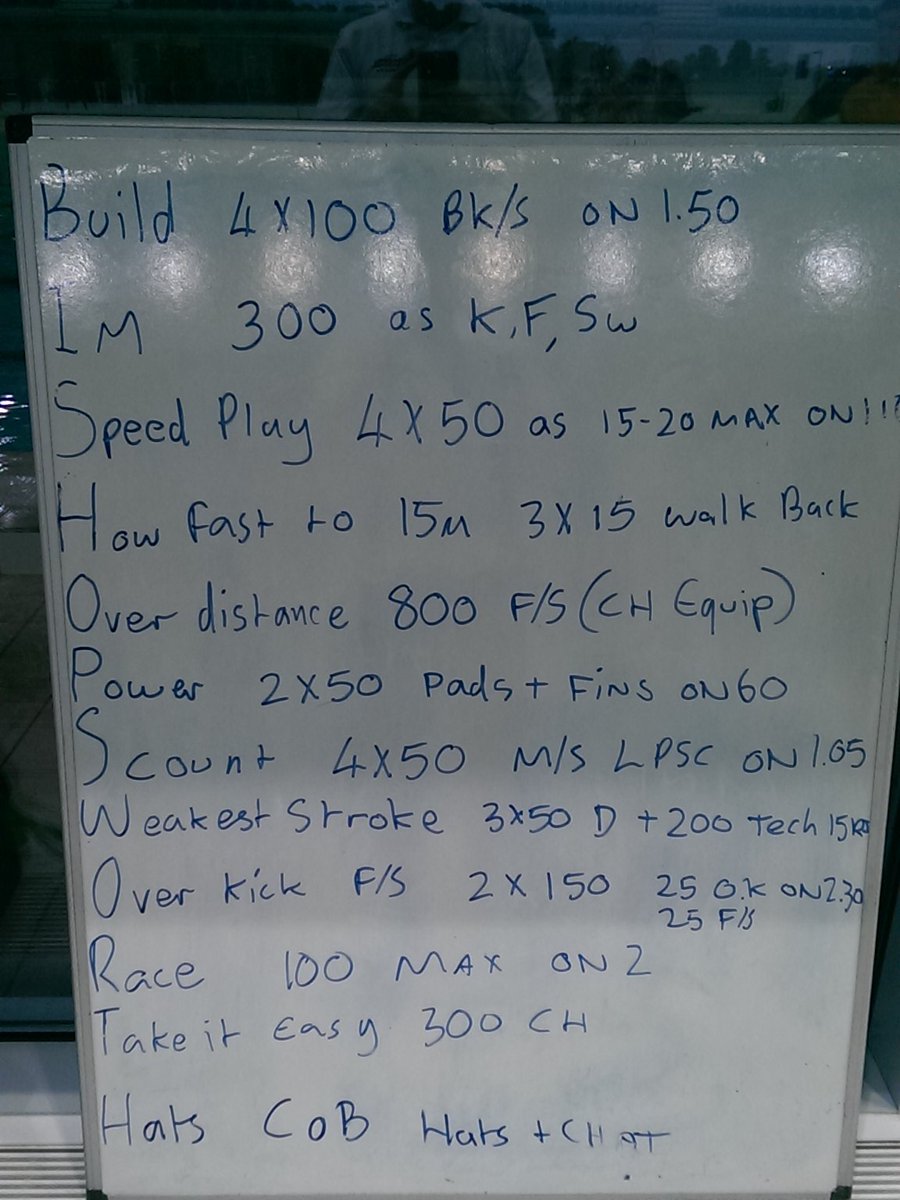 Build 4X100 BK/S ON 1.50
IM 300 as K,F,Sw
Speed Play 4X50 as 15-20 MAX ON
How fast to 15M 3X15 walk Back
Over distance 800 F/S (CH Equip)
Power 2X50 Pads + FiNS ON 60
S count 4X50 M/S LPSC ON 1.05
Weakest Stroke 3X50 D + 200 Tech
Over kick F/S 2X150 25 O.K ON 2.30
25 F/S
Race 100 MAX ON 2
Take it Easy 300 CH
Hats CoB Hats +